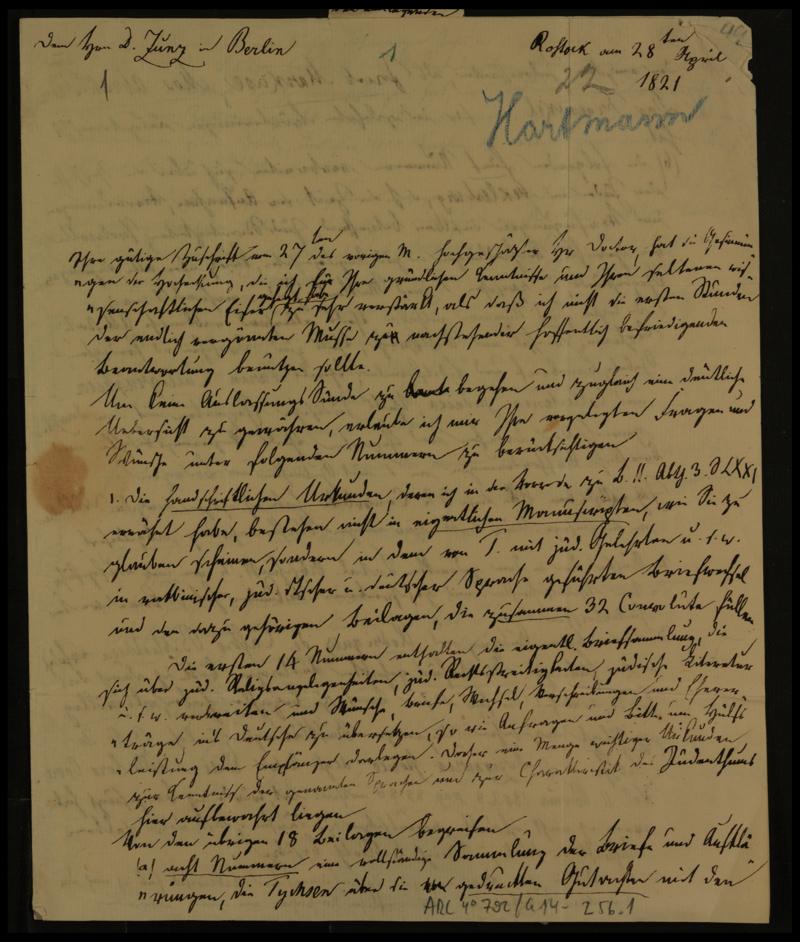 Dem Hrn D. Zunz in Berlin
1
1
Rostock am 28ten April
22 1821
Hartmann
Ihre gütige Zuschrift vom 27ten des vorigen M. hochgeschätzter Hr Doctor, hat die Gesinnun
"gen der Hochachtung, die ich für Ihre gründlichen Kenntnisse und Ihren seltenen wis"
"senschaftlichen Eifer zu sehr verstärkt, als daß ich nicht die ersten Stunden
der endlich vergönnten Muße zu nachstehender hoffentlich befriedigenden
Beantwortung benutzen sollte.
Um keine Auslassungs Sünde zu begehen und zugleich eine deutliche
Uebersicht zu gewähren, erlaube ich mir Ihre vorgelegten Fragen und
Wünsche unter folgenden Nummern zu berücksichtigen
1. Die handschriftlichen Urkunden, deren ich in der Vorrede zu B. II. Abth. 3. S LXXI
erwähnt habe, bestehen nicht in eigentlichen Manuscripten, wie Sie zu
glauben scheinen, sondern in dem von T. mit jüd. Gelehrten u. s. w.
in rabbinischer, jüd. dtscher u. deutscher Sprache geführten Briefwechsel
und den dazu gehörigen Beilagen, die zusammen 32 Convolute füllen
Die ersten 14 Nummern enthalten die eigentl. Briefsammlung, die
sich über jüd. Religionsgelegenheiten, jüd. Rechtsstreitigkeiten, jüdische Literatur
u. s. w. verbreiten und Wünsche, Briefe, Wechsel, Verschreibungen und Ehever"
"träge ins Deutsche zu übersetzen, so wie Anfragen und Bitten um Hülfs
"leistung dem Empfänger darlegen. Daher eine Menge wichtiger Urkunden
zur Kenntniß der genannten Sprachen und zur Charakteristik des Judenthums
hier aufbewahrt liegen
Von den übrigen 18 Beilagen begreifen
(a) acht Nummern eine vollständige Sammlung der Briefe und Aufklä
"rungen, die Tychsen über die gedruckten Gutachten mit den
ARC 4° 792/G14-256.1